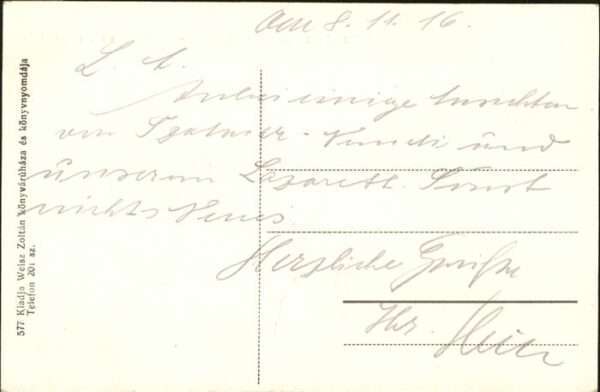 8. 11. 16.
L.
Anbei einige Ansichten
von und
unserem Lazarett. Sonst
nichts Neues
Herzliche Grüße
Ihr
577 Kiadja Weisz Zoltán könyváruháza és könyvnyomdája
Telefon 201 sz.